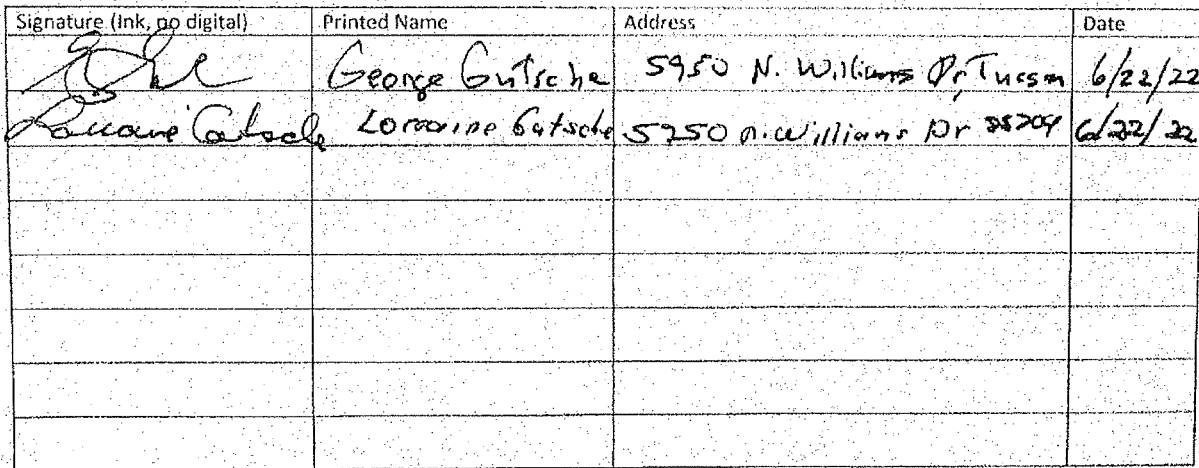 Signature (Ink, no digital) Printed Name Address Date
George Gutsche 5950 N. Williams Dr, Tucson 6/22/22
Lorraine Gutsche Lorraine Gutsche 5950 N. Williams Dr 85704 6/22/22